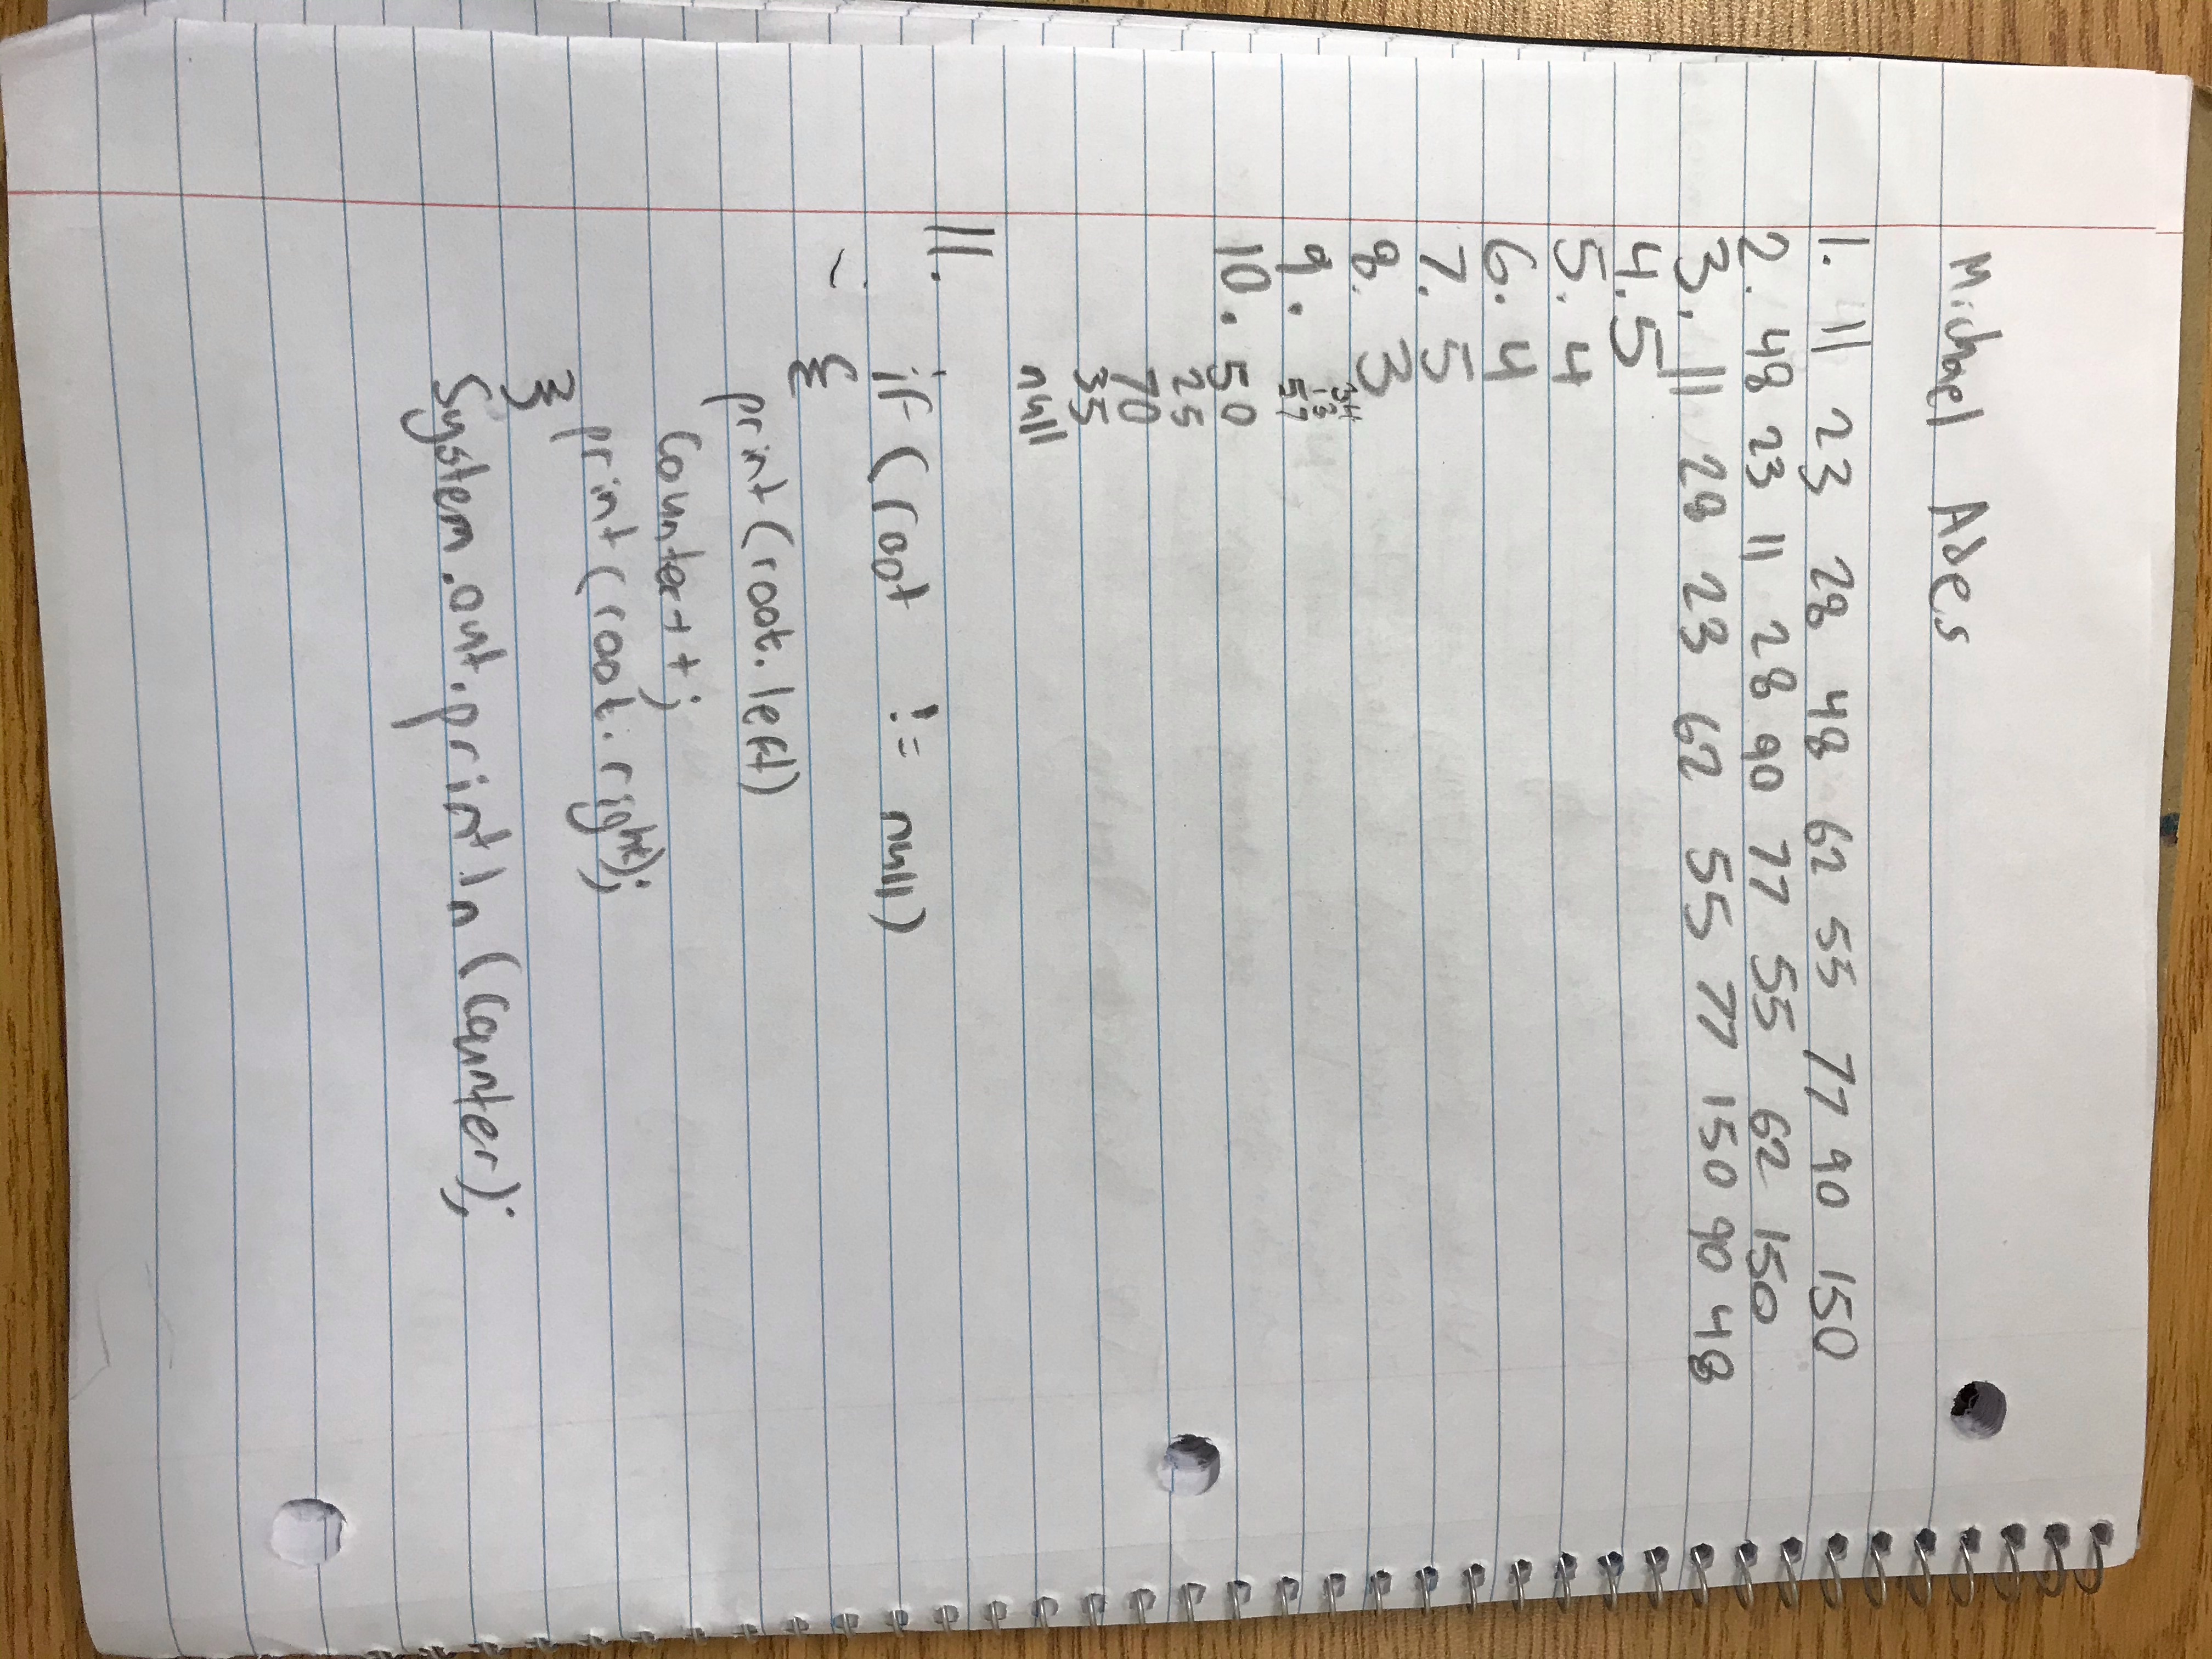 Michael Ades
1. 11 23 28 48 62 55 77 90 150
2. 48 23 11 28 90 77 55 62 150
3. 11 28 23 62 55 77 150 90 48
4. 5
5. 4
6. 4
7. 5
8. 3
9. 34
13
57
10. 50
25
70
35
null
11.
if (root != null)
{
print(root.left)
Counter++;
print(root.right);
}
System.out.println(Counter);